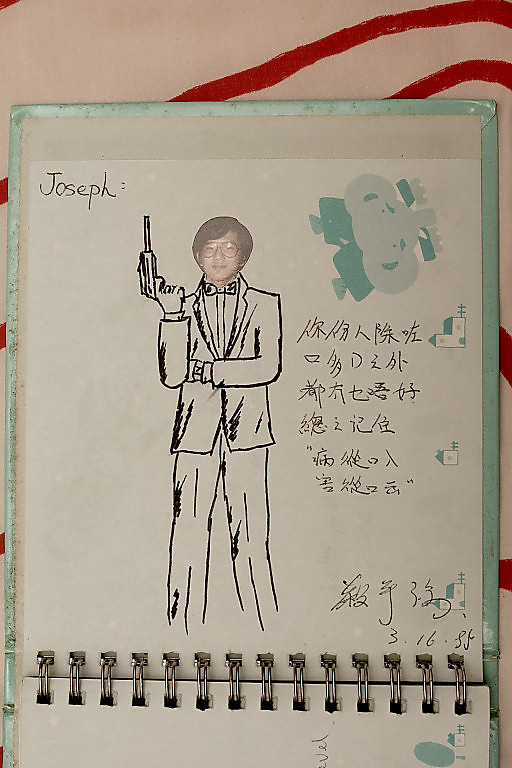 Joseph:
你份人除咗
口多D之外
都冇乜唔好
總之记住
"病從口入
害從口出"
3.16.85